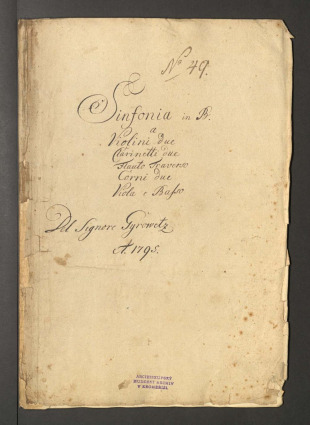 No 49.
Sinfonia in B.
a
Violini due
Clarinetti due
Flauto Traverso
Corni due
Viola e Basso
Del Signore Gyrowetz
A. 1795.
ARCIBISKUPSKÝ
HUDEBNÍ ARCHIV
V KROMĚŘÍŽI